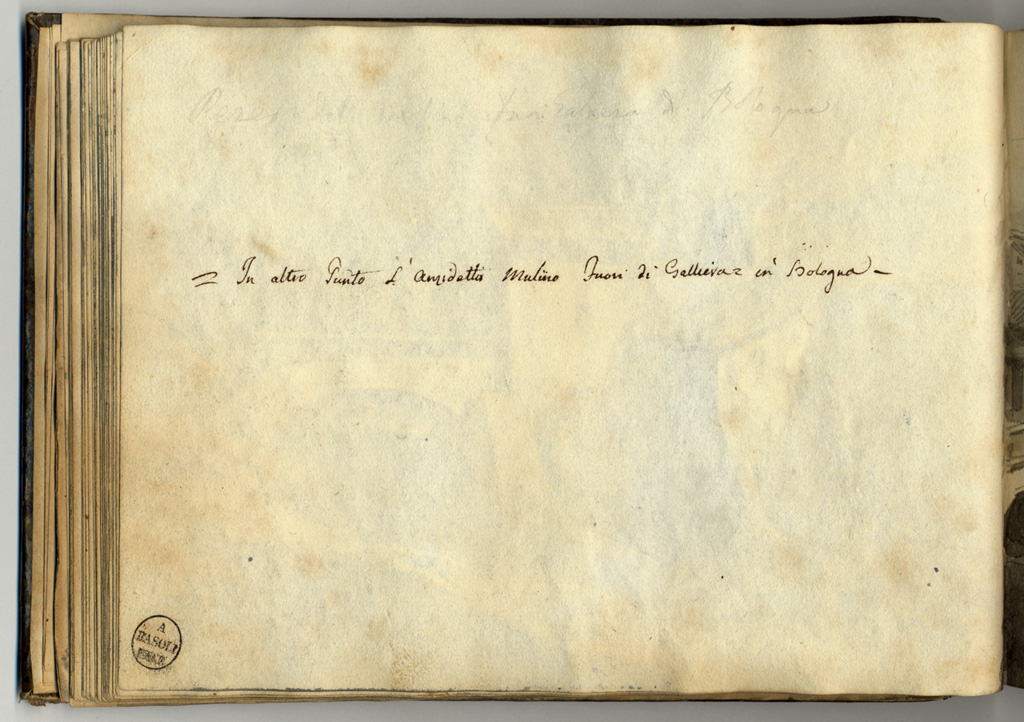 Bologna
= In altro Punto L' Anzidetto Mulino Fuori di Galliera = in Bologna -
A
BASOLI